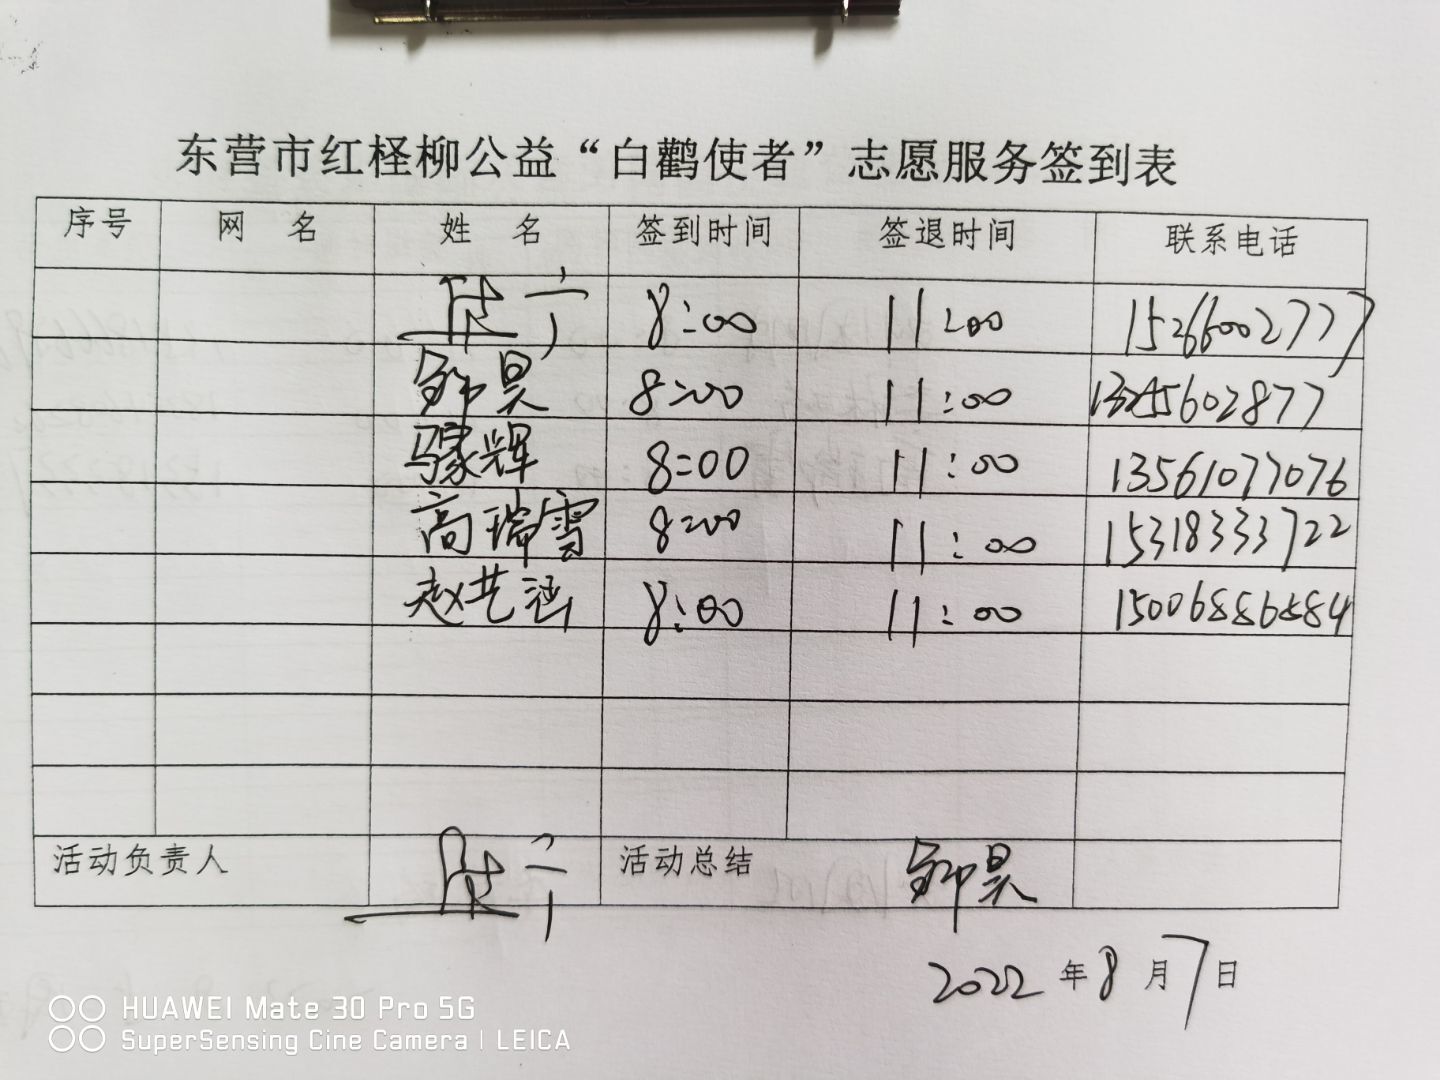 东营市红柽柳公益“白鹳使者”志愿服务签到表
序号 网 名 姓 名 签到时间 签退时间 联系电话
8:00 11:00 15266002777
昊 8:00 11:00 602877
辉 8:00 11:00 13561077076
高瑞雪 8:00 11:00 15318333722
赵艺涵 8:00 11:00 15006886884
活动负责人 活动总结 昊
2022 年 8 月 7 日
HUAWEI Mate 30 Pro 5G
SuperSensing Cine Camera | LEICA